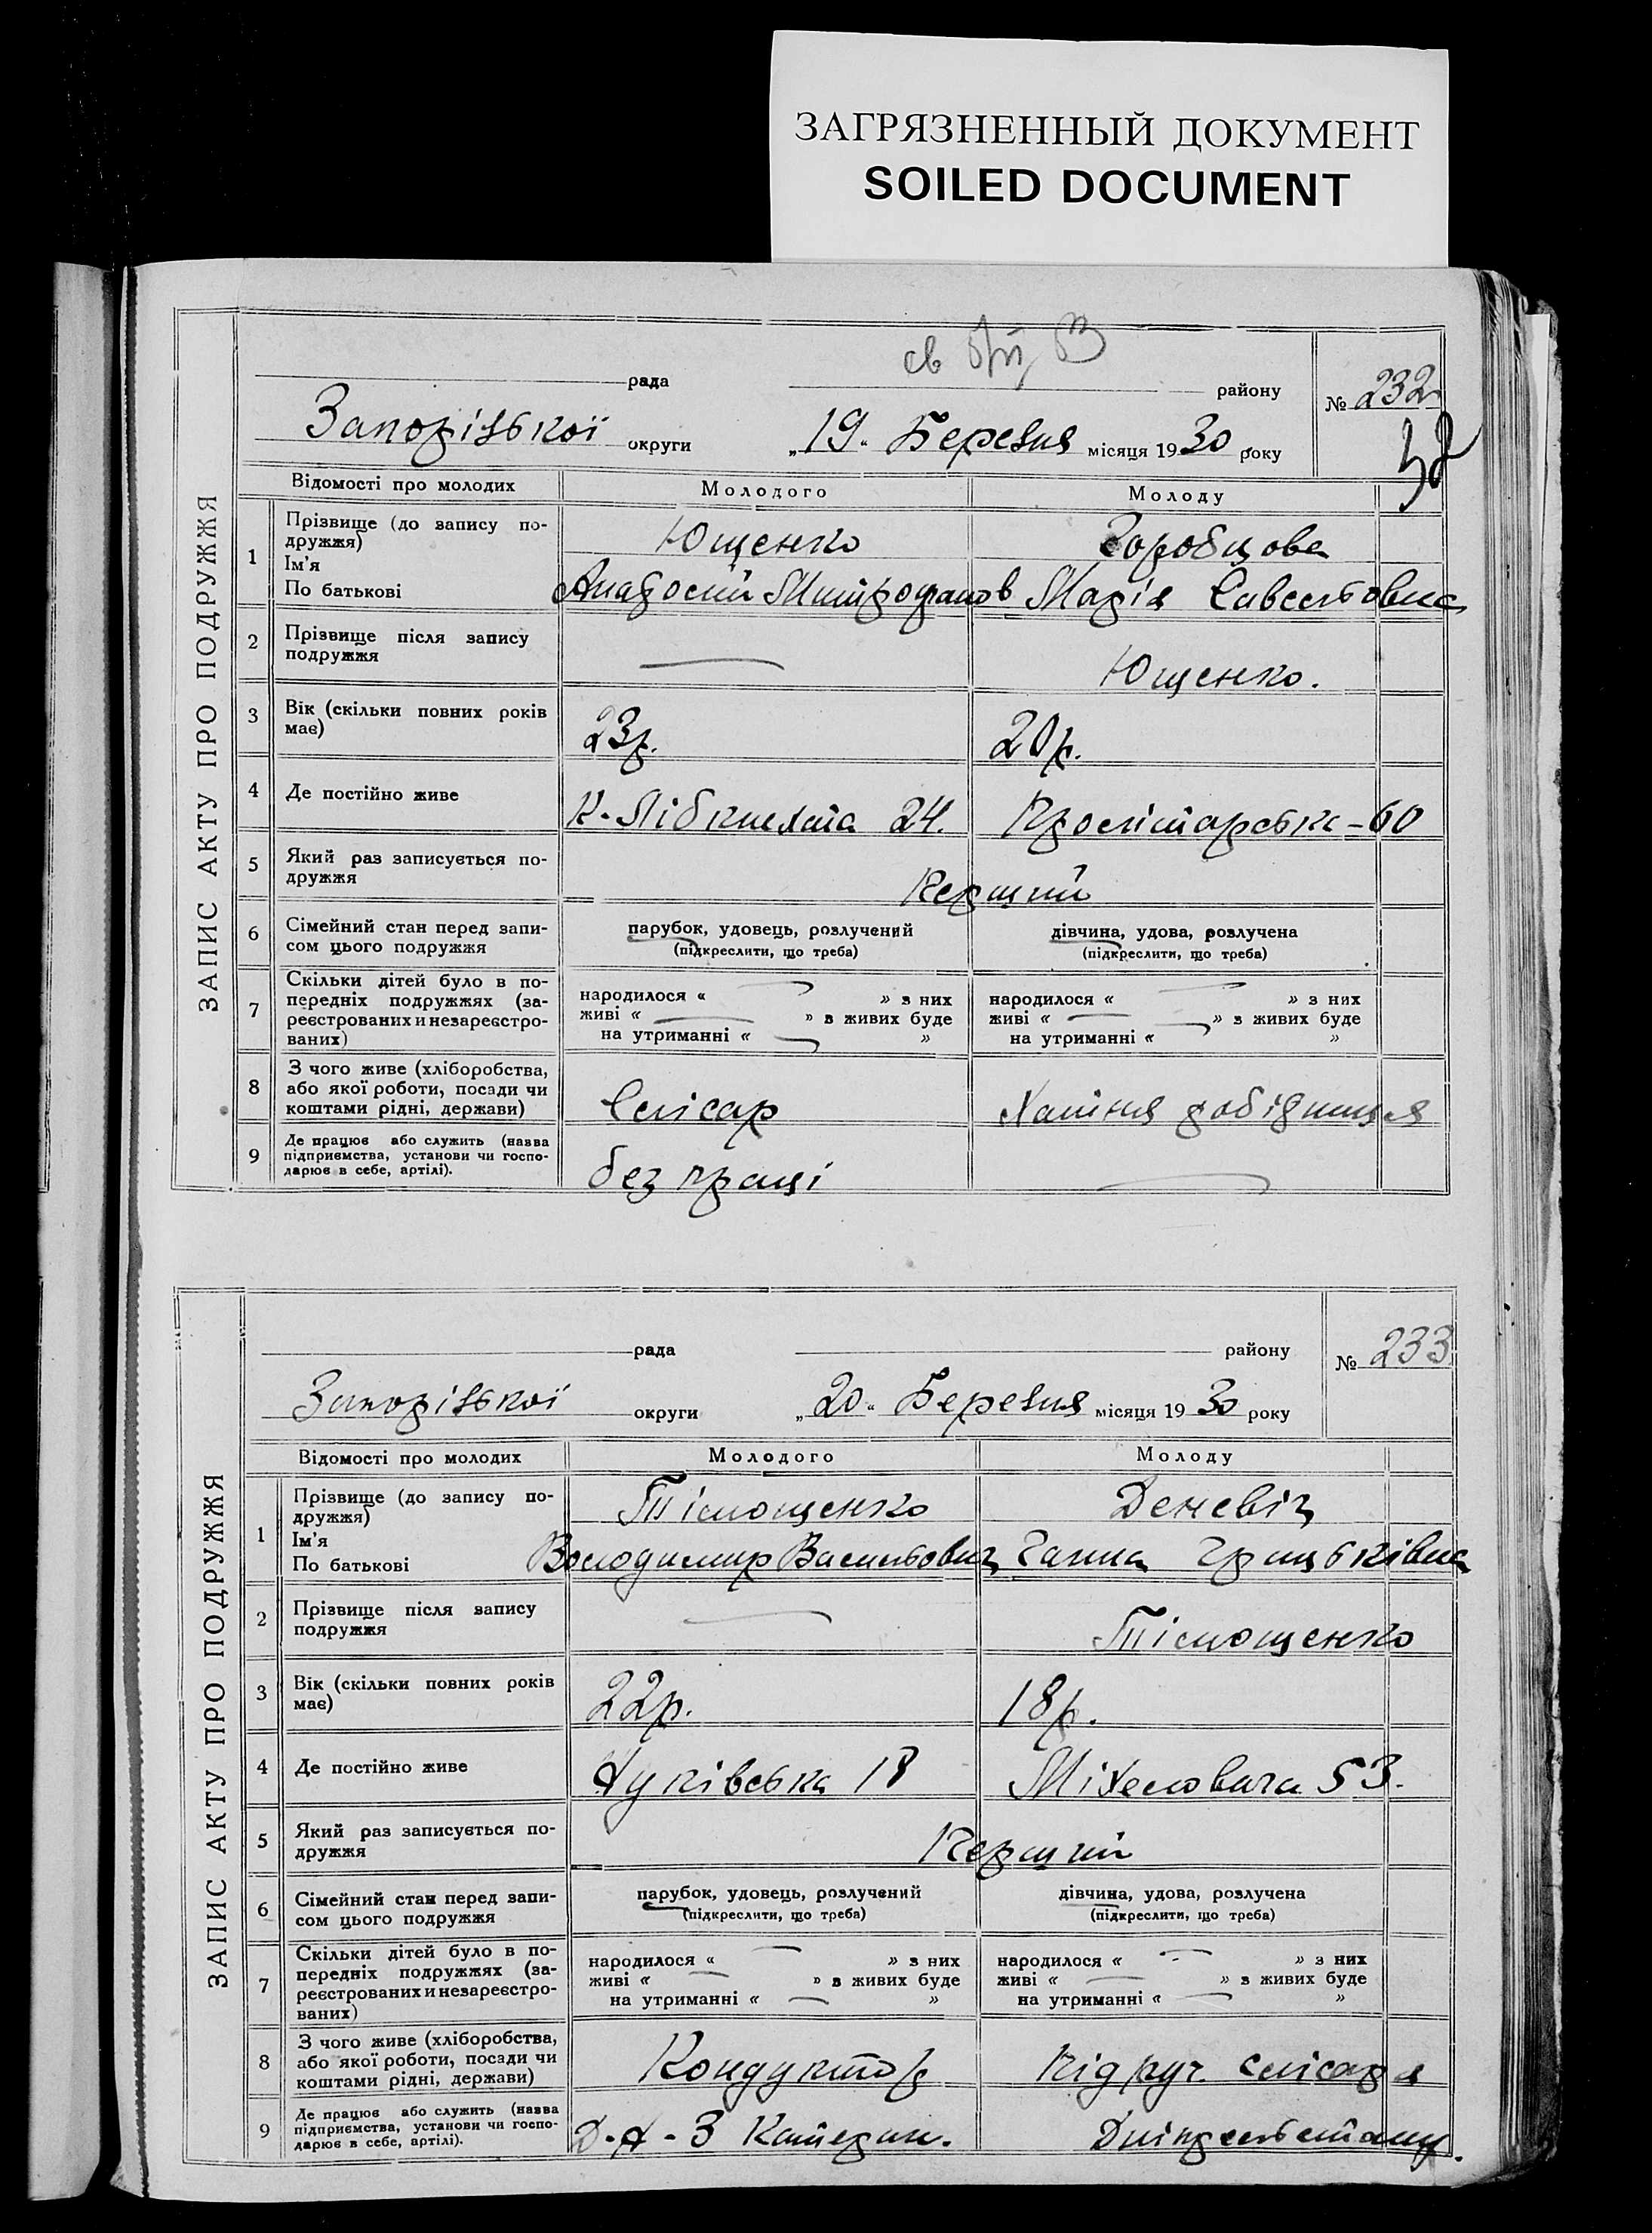 ЗАГРЯЗНЕННЫЙ ДОКУМЕНТ
SOILED DOCUMENT
ЗАПИС АКТУ ПРО ПОДРУЖЖЯ
рада району № 232
Запорізької округи „19“ Березня місяця 1930 року
Відомості про молодих Молодого Молоду
1 Прізвище (до запису по-
дружжя)
Ім'я
По батькові
Ющенко Горобцова
Митрофанов Марія
2 Прізвище після запису
подружжя
— Ющенко.
3 Вік (скільки повних років
має)
23р. 20р.
4 Де постійно живе
К. Лібкнехта 24. Пролітарська-60
5 Який раз записується по-
дружжя
Перший
6 Сімейний стан перед запи-
сом цього подружжя
парубок, удовець, розлучений дівчина, удова, розлучена
(підкреслити, що треба) (підкреслити, що треба)
7 Скільки дітей було в по-
передніх подружжях (за-
реєстрованих и незареєстро-
ваних)
народилося « — » з них народилося « — » з них
живі « — » з живих буде живі « — » з живих буде
на утриманні « — » на утриманні « — »
8 З чого живе (хліборобства,
або якої роботи, посади чи
коштами рідні, держави)
Слісар Хатня робітниця
9 Де працює або служить (назва
підприємства, установи чи госпо-
дарює в себе, артілі).
без праці —
ЗАПИС АКТУ ПРО ПОДРУЖЖЯ
рада району № 233
Запорізької округи „20“ Березня місяця 1930 року
Відомості про молодих Молодого Молоду
1 Прізвище (до запису по-
дружжя)
Ім'я
По батькові
Тімощенко Деневіч
Володимир Васильович Ганна Грицьківна
2 Прізвище після запису
подружжя
— Тімощенко
3 Вік (скільки повних років
має)
22р. 18р.
4 Де постійно живе
18 53.
5 Який раз записується по-
дружжя
Перший
6 Сімейний стан перед запи-
сом цього подружжя
парубок, удовець, розлучений дівчина, удова, розлучена
(підкреслити, що треба) (підкреслити, що треба)
7 Скільки дітей було в по-
передніх подружжях (за-
реєстрованих и незареєстро-
ваних)
народилося « — » з них народилося « — » з них
живі « — » з живих буде живі « — » з живих буде
на утриманні « — » на утриманні « — »
8 З чого живе (хліборобства,
або якої роботи, посади чи
коштами рідні, держави)
Кондуктор підруч. слісаря
9 Де працює або служить (назва
підприємства, установи чи госпо-
дарює в себе, артілі).
Катерин. Дніпрельстану.